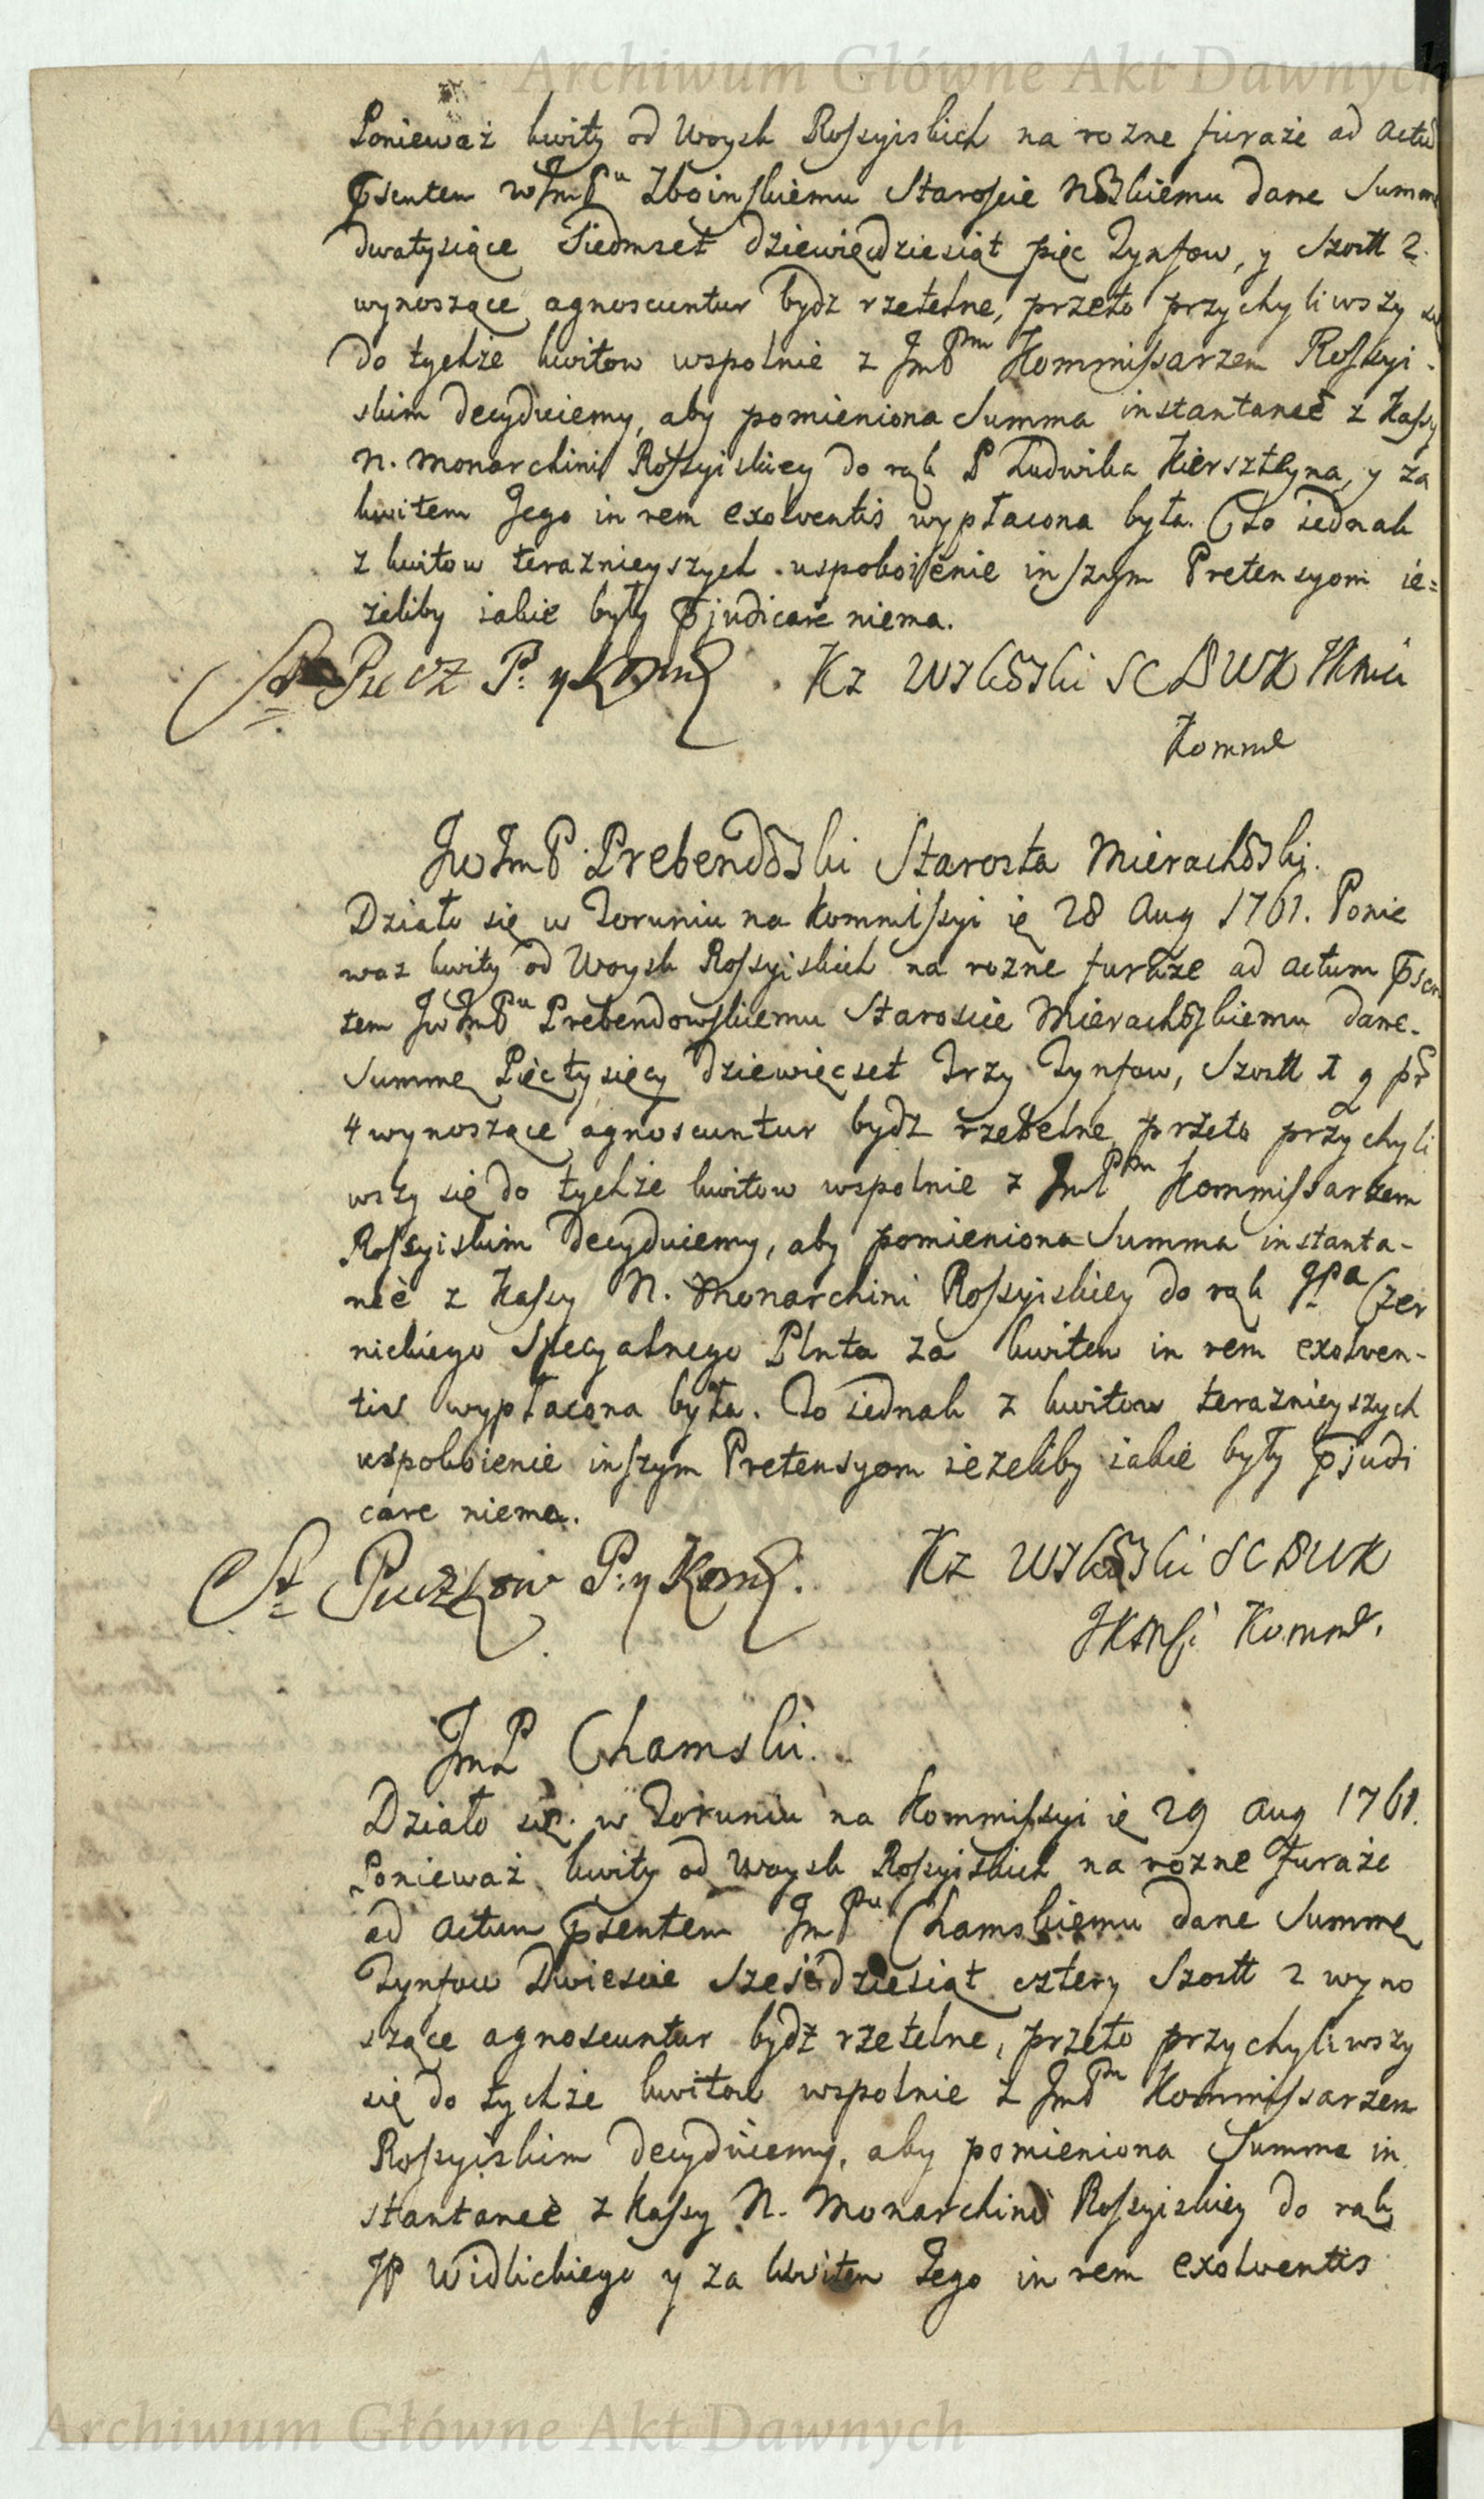 Archiwum Główne Akt Dawnych
Ponieważ kwity od Woysk Rossyiskich na rozne furaże ad actū
p̄sentem WJmPu Zboinskiemu Staroscie dane Summę
dwatysiące Siedmset dziewięcdziesiąt pięc Tynfow, y Szostt 2.
wynoszące agnoscuntur bydz rzetelne, przeto przychyliwszy
do tychże kwitow wspolnie z JmPm Kommissarzem Rossyi-
skim decyduiemy, aby pomieniona Summa instantaneè z Kassy
N. Monarchini Rossyiskiey do rąk P Ludwika Kiersztyna, y za
kwitem Jego in rem exolventis wypłacona była. Cto iednak
z kwitow teraznieyszych uspokoienie inszym Pretensyom ie=
żeliby iakie były p̄judicare niema.
St Pucz P. y Kom Kz SC BWK
Komme
JWJmP. Prebendoski Starosta Mierachoski.
Działo się w Toruniu na Kommissyi ię 28 Aug 1761. Ponie
waz kwity od Woysk Rossyiskich na rozne furaze ad actum p̄sen
tem JWJmPu Prebendowskiemu Staroscie Mierachoskiemu dane.
Summę Pięctysięcy dziewięcset Trzy Tynfow, Szostt 1 g pr
4 wynoszące agnoscuntur bydz rzetelne, przeto przychyli
wszy się do tychże kwitow wspolnie z JmPm Kommissarzem
Rossyiskim decyduiemy, aby pomieniona Summa instanta-
neè z Kassy N. Monarchini Rossyiskiey do rąk JPa Czer
nickiego Specyalnego Plnta za kwitem in rem exolven-
tis wypłacona była. To iednak z kwitow teraznieyszych
uspokoienie inszym Pretensyom ieżeliby iakie były p̄judi
care niema.
St Puczkow P: y Kom. Kz SC BWK
JKMSi Komme.
JmP Chamski.
Działo się w Toruniu na Kommissyi ię 29 Aug 1761.
Ponieważ kwity od Woysk Rossyiskich na rozne Furaże
ad actum p̄sentem JmPu Chamskiemu dane Summę
Tynfow Dwiescie Szesćdziesiąt cztery Szostt 2 wyno
szące agnoscuntur bydź rzetelne, przeto przychyliwszy
się do tychże kwitow wspolnie z JmPm Kommissarzem
Rossyiskim decyduiemy, aby pomieniona Summa in
stantaneè z Kassy N. Monarchini Rossyiskiey do rąk
JP Widlickiego y za kwitem Jego in rem exolventis
Archiwum Główne Akt Dawnych